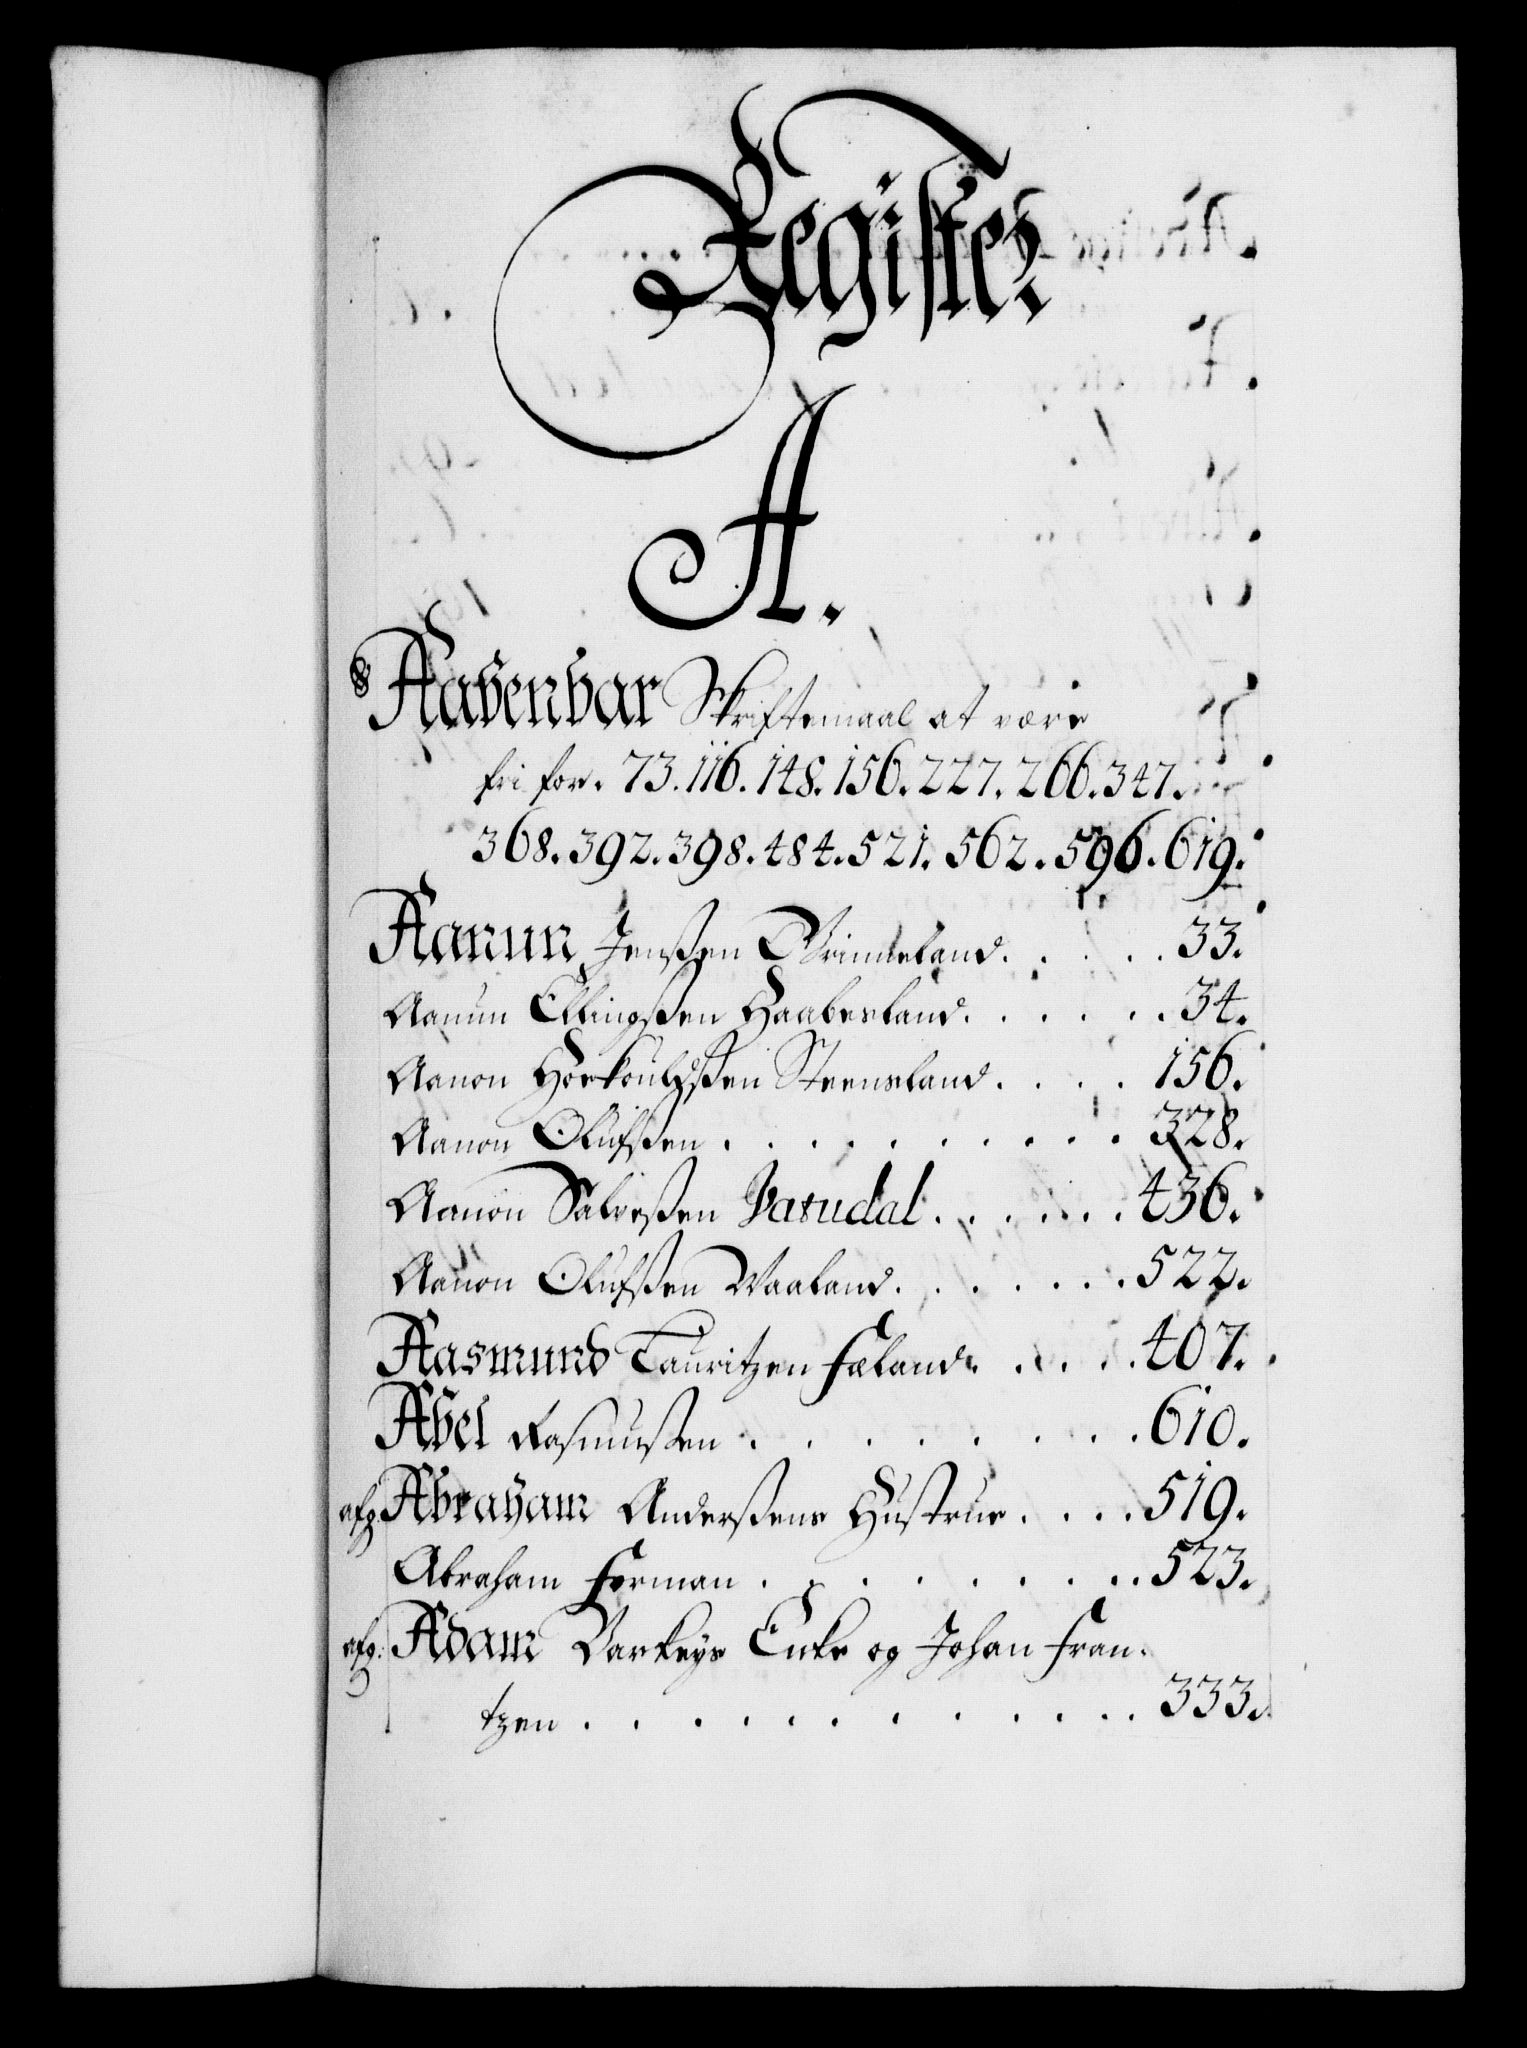 Register
A.
Aabenbar Skriftemaal at være
fri for. 73. 116. 148. 156. 227. 266. 347.
368. 392. 398. 484. 521. 562. 596. 619.
Aanun Jenssen Grimeland. . . . . 33.
Aanun Ellingssen Haabesland. . . . . . 34.
Aanon Steensland. . . . 156.
Aanon Olufssen . . . . . . . . . . 328.
Aanon Salvessen . . . . . . 436.
Aanon Olufssen Waaland. . . . . . . 522.
Aasmund Lauritzen Fæland. . . . . 407.
Abel Rasmussen . . . . . . . . 610.
afg. Abraham Anderssens Hustrue . . . . 519.
Abraham Forman . . . . . . . . . 523.
afg. Adam Barkeys Enke og Johan Fran-
tzen . . . . . . . . . . . . . 333.